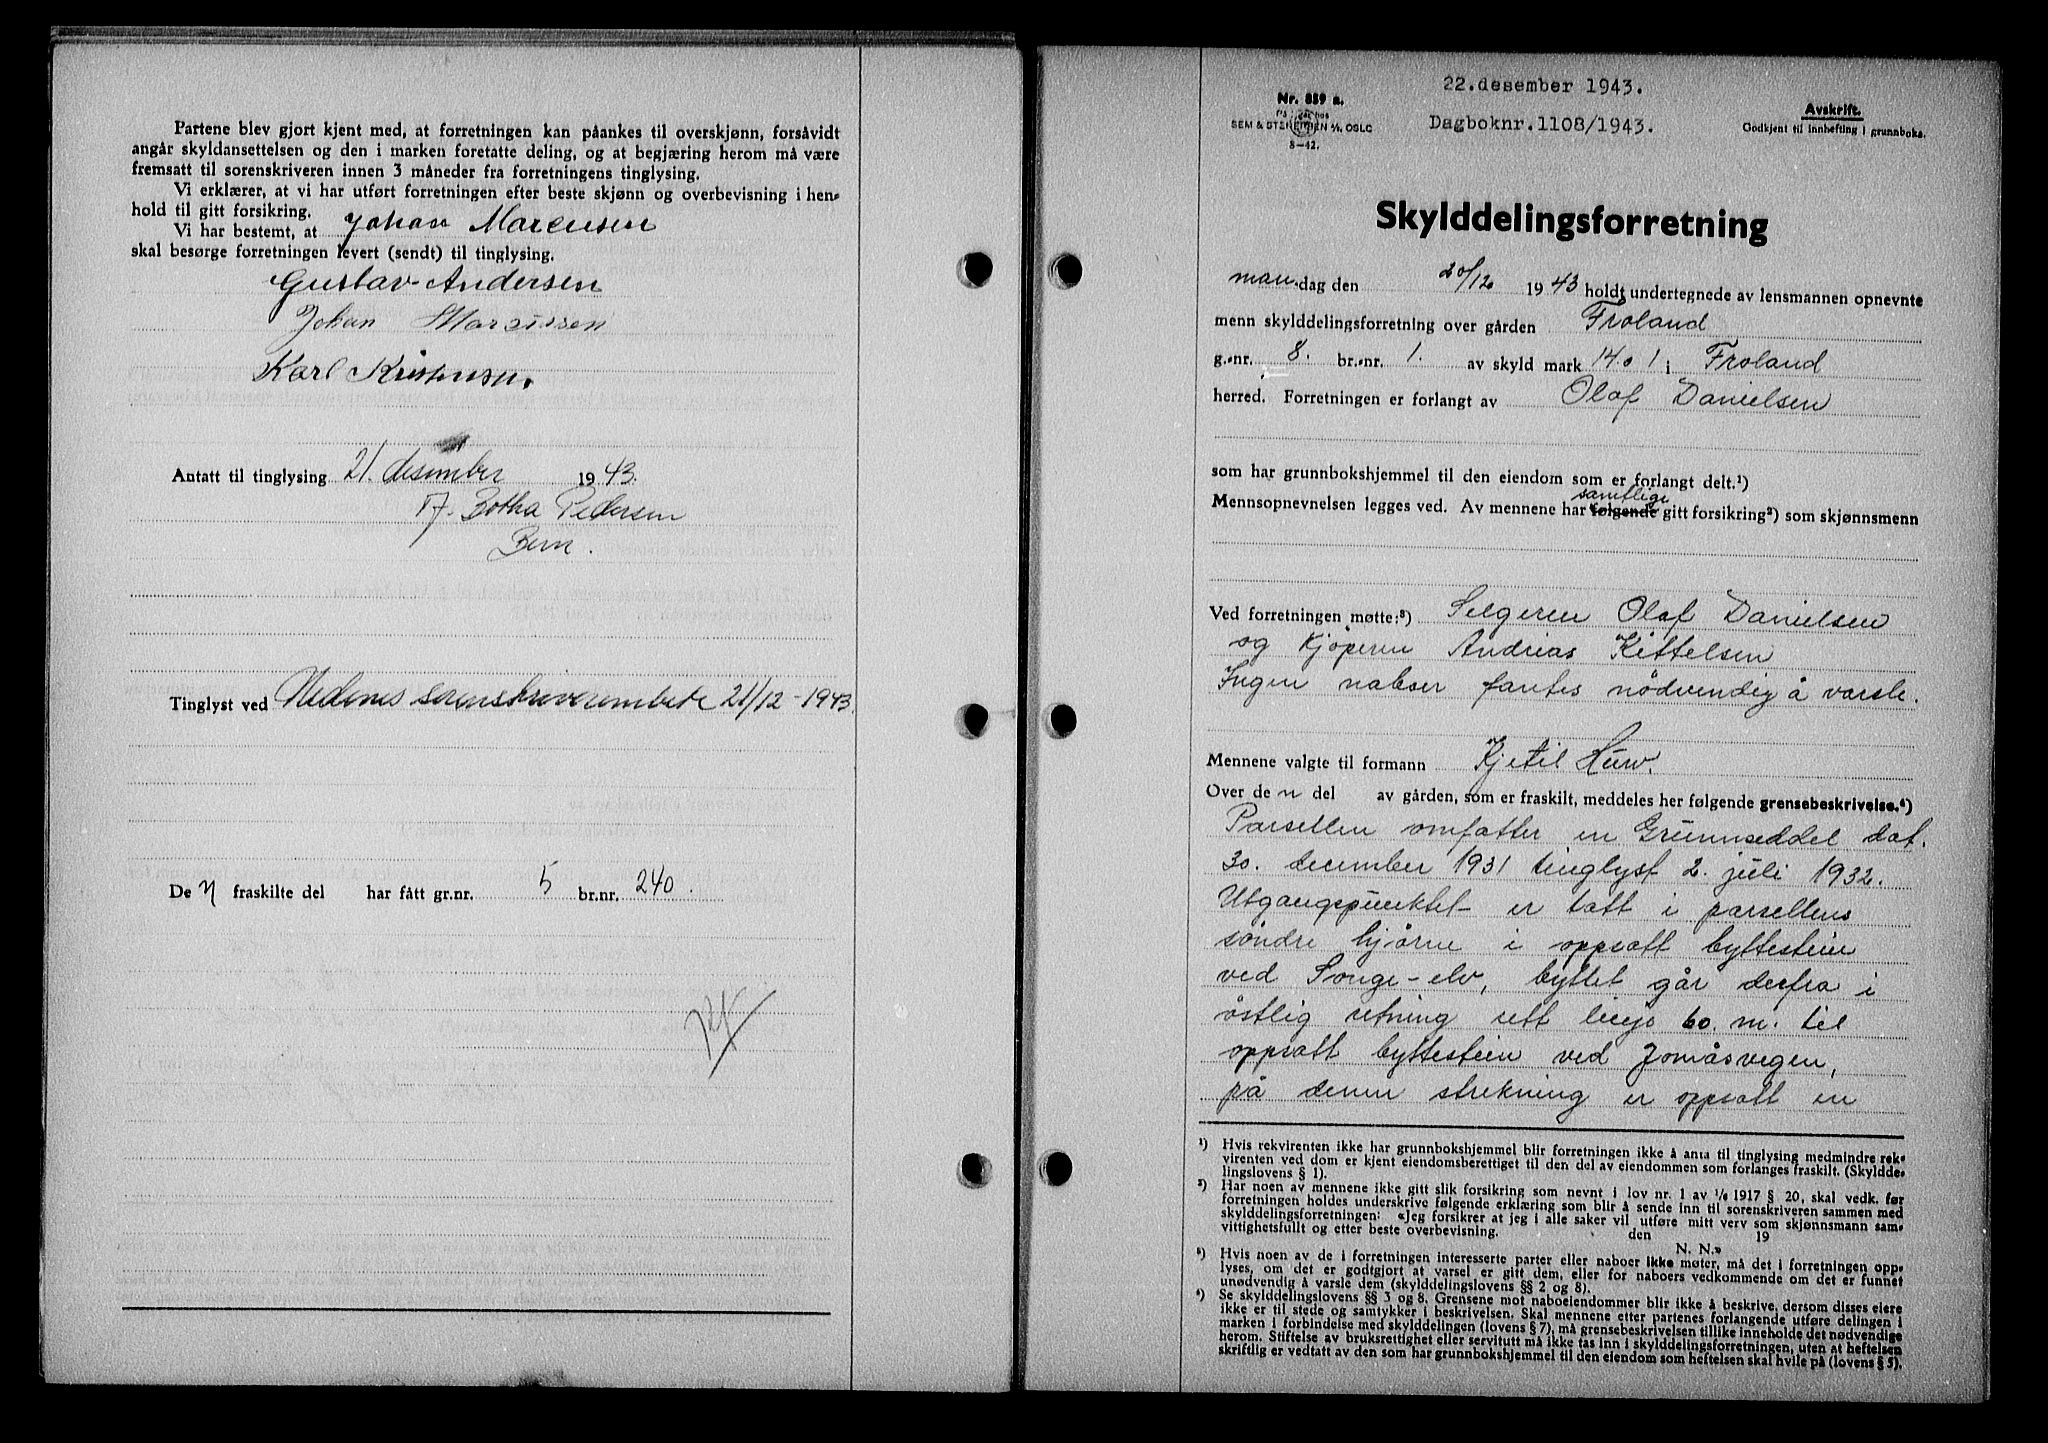 Partene blev gjort kjent med, at forretningen kan påankes til overskjønn, forsåvidt
angår skyldansettelsen og den i marken foretatte deling, og at begjæring herom må være
fremsatt til sorenskriveren innen 3 måneder fra forretningens tinglysing.
Vi erklærer, at vi har utført forretningen efter beste skjønn og overbevisning i hen-
hold til gitt forsikring.
Vi har bestemt, at Johan Marcusen
skal besørge forretningen levert (sendt) til tinglysing.
Gustav Andersen
Johan Marcussen
Karl Kristensen.
Antatt til tinglysing 21. desember 1943.
Botha Pedersen
Tinglyst ved Nedenes sorenskriverembete 21/12-1943.
De n fraskilte del har fått gr.nr. 5 br.nr. 240.
22.desember 1943.
Nr. 889 a.
SEM & STENERSEN A/S. OSLO
8-42.
Dagboknr.1108/1943.
Avskrift.
Godkjent til innhefting i grunnboks.
Skylddelingsforretning
man.dag den 20/12 1943 holdt undertegnede av lensmannen opnevnte
menn skylddelingsforretning over gården Froland
g.-nr. 8. br.-nr. 1. av skyld mark 14.01 i Froland
herred. Forretningen er forlangt av Olaf Danielsen
som har grunnbokshjemmel til den eiendom som er forlangt delt.¹)
samtlige
Mennsopnevnelsen legges ved. Av mennene har følgende gitt forsikring²) som skjønnsmenn
Ved forretningen møtte:³) Selgeren Olaf Danielsen
og Kjøperen Andreas Kittelsen
Ingen naboer fantes nödvendig å varsle.
Mennene valgte til formann Kjetil
Over de n del av gården, som er fraskilt, meddeles her følgende grensebeskrivelse.⁴)
Parsellen omfatter en Grunnseddel dat.
30. december 1931 tinglyst 2. juli 1932.
Utgangspunktet er tatt i parsellens
söndre hjörne i oppsatt byttestein
ved Songe-elv, byttet går derfra i
östlig retning rett linje 60. m. til
oppsatt byttestein ved Jomåsvegen,
på denne strekning er oppsatt en
¹) Hvis rekvirenten ikke har grunnbokshjemmel blir forretningen ikke å anta til tinglysing medmindre rek-
virenten ved dom er kjent eiendomsberettiget til den del av eiendommen som forlanges fraskilt. (Skyldde-
lingslovens § 1).
²) Har noen av mennene ikke gitt slik forsikring som nevnt i lov nr. 1 av 1/6 1917 § 20, skal vedk. før
forretningen holdes underskrive følgende erklæring som blir å sende inn til sorenskriveren sammen med
skylddelingsforretningen: «Jeg forsikrer at jeg i alle saker vil utføre mitt verv som skjønnsmann sam-
vittighetsfullt og etter beste overbevisning. den 19
N. N.»
³) Hvis noen av de i forretningen interesserte parter eller naboer ikke møter, må det i forretningen opp-
lyses, om det er godtgjort at varsel er gitt dem, eller for naboers vedkommende om det er funnet
unødvendig å varsle dem (skylddelingslovens §§ 2 og 8).
⁴) Se skylddelingslovens §§ 3 og 8. Grensene mot naboeiendommer blir ikke å beskrive, dersom disses eiere
ikke er til stede og samtykker i beskrivelsen. Skal mennene etter partenes forlangende utføre delingen i
marken i forbindelse med skylddelingen (lovens § 7), må grensebeskrivelsen tillike inneholde det nødvendige
herom. Stiftelse av bruksrettighet eller servitutt må ikke tas inn i skylddelingsforretningen, uten at heftelsen
skriftlig er vedtatt av den som har grunnbokshjemmel til den eiendom som heftelsen skal hvile på (lovens § 5).